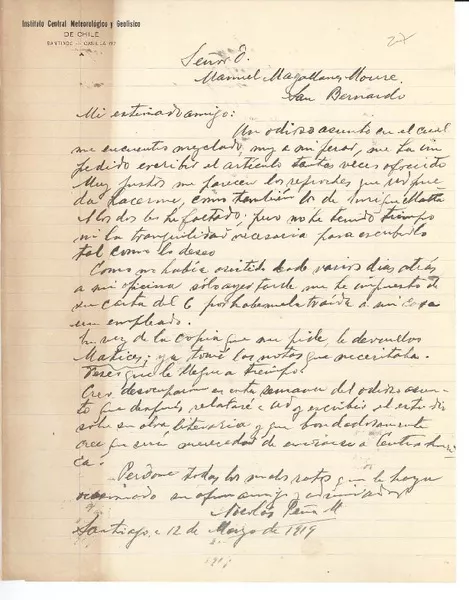 Instituto Central Meteorológico y Geofísico
DE CHILE
SANTIAGO - CASILLA
27
Señor D.
Manuel Magallanes Moure.
San Bernardo
Mi estimado amigo:
Un odioso asunto en el cual
me encuentro mezclado, muy a mi pesar, me ha im
pedido escribir el artículo tantas veces ofrecido
Muy justos me parecen los reproches que Ud pue
da hacerme, como también los de Enrique Matta
A los dos les he faltado; pero no he tenido tiempo
ni la tranquilidad necesaria para escribirlo
tal como lo deseo
Como no había asistido desde varios dias atrás
a mi oficina solo ayer tarde me he impuesto de
su carta del 6 por habermela traída a mi casa
un empleado.
En vez de la copia que me pide, le devuelvo
Matices; ya tomé las notas que necesitaba.
Deseo que le llegue a tiempo.
Creo desocuparme en esta semana del odioso asun
to que después relataré a Ud y escribir el estudio
sobre su obra literaria y que bondadosamente
cree que será merecedor de enviarse a Centro Amé
rica.
Perdone todos los malos ratos que le haya
ocasionado su afmo amigo y admirador
Nicolás Peña M.
Santiago, 12 de Marzo de 1919